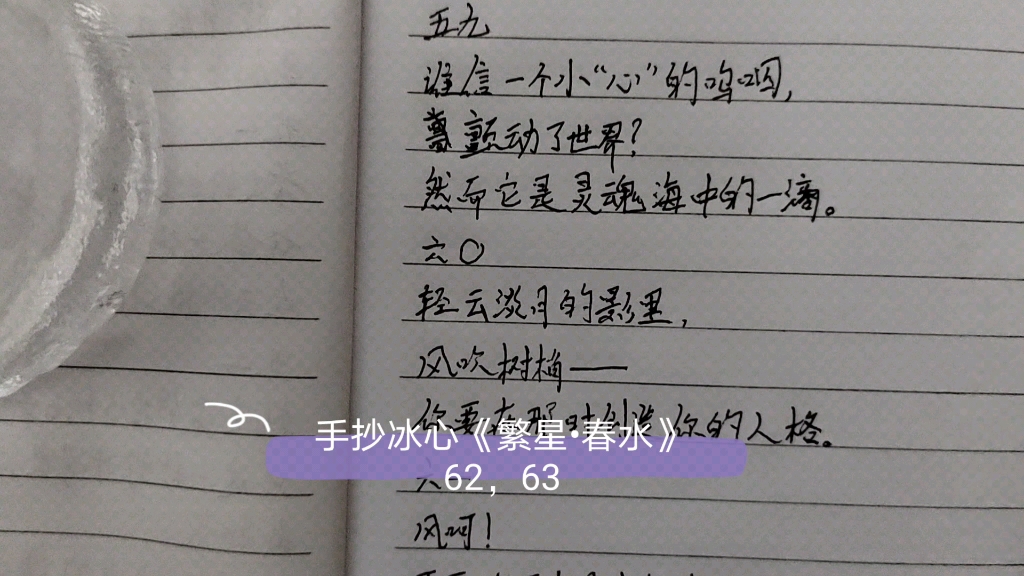 五九
谁信一个小“心”的呜咽，
颤动了世界？
然而它是灵魂海中的一滴。
六〇
轻云淡月的影里，
风吹树梢——
你要在那时创造你的人格。
手抄冰心《繁星·春水》
62，63
六
风呵！